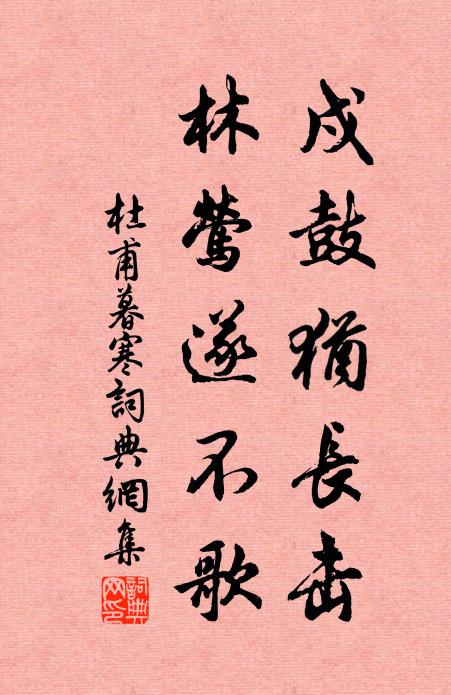 戍鼓猶長击
林鶯遂不歌
杜甫暮寒詞典網集
詞典网印